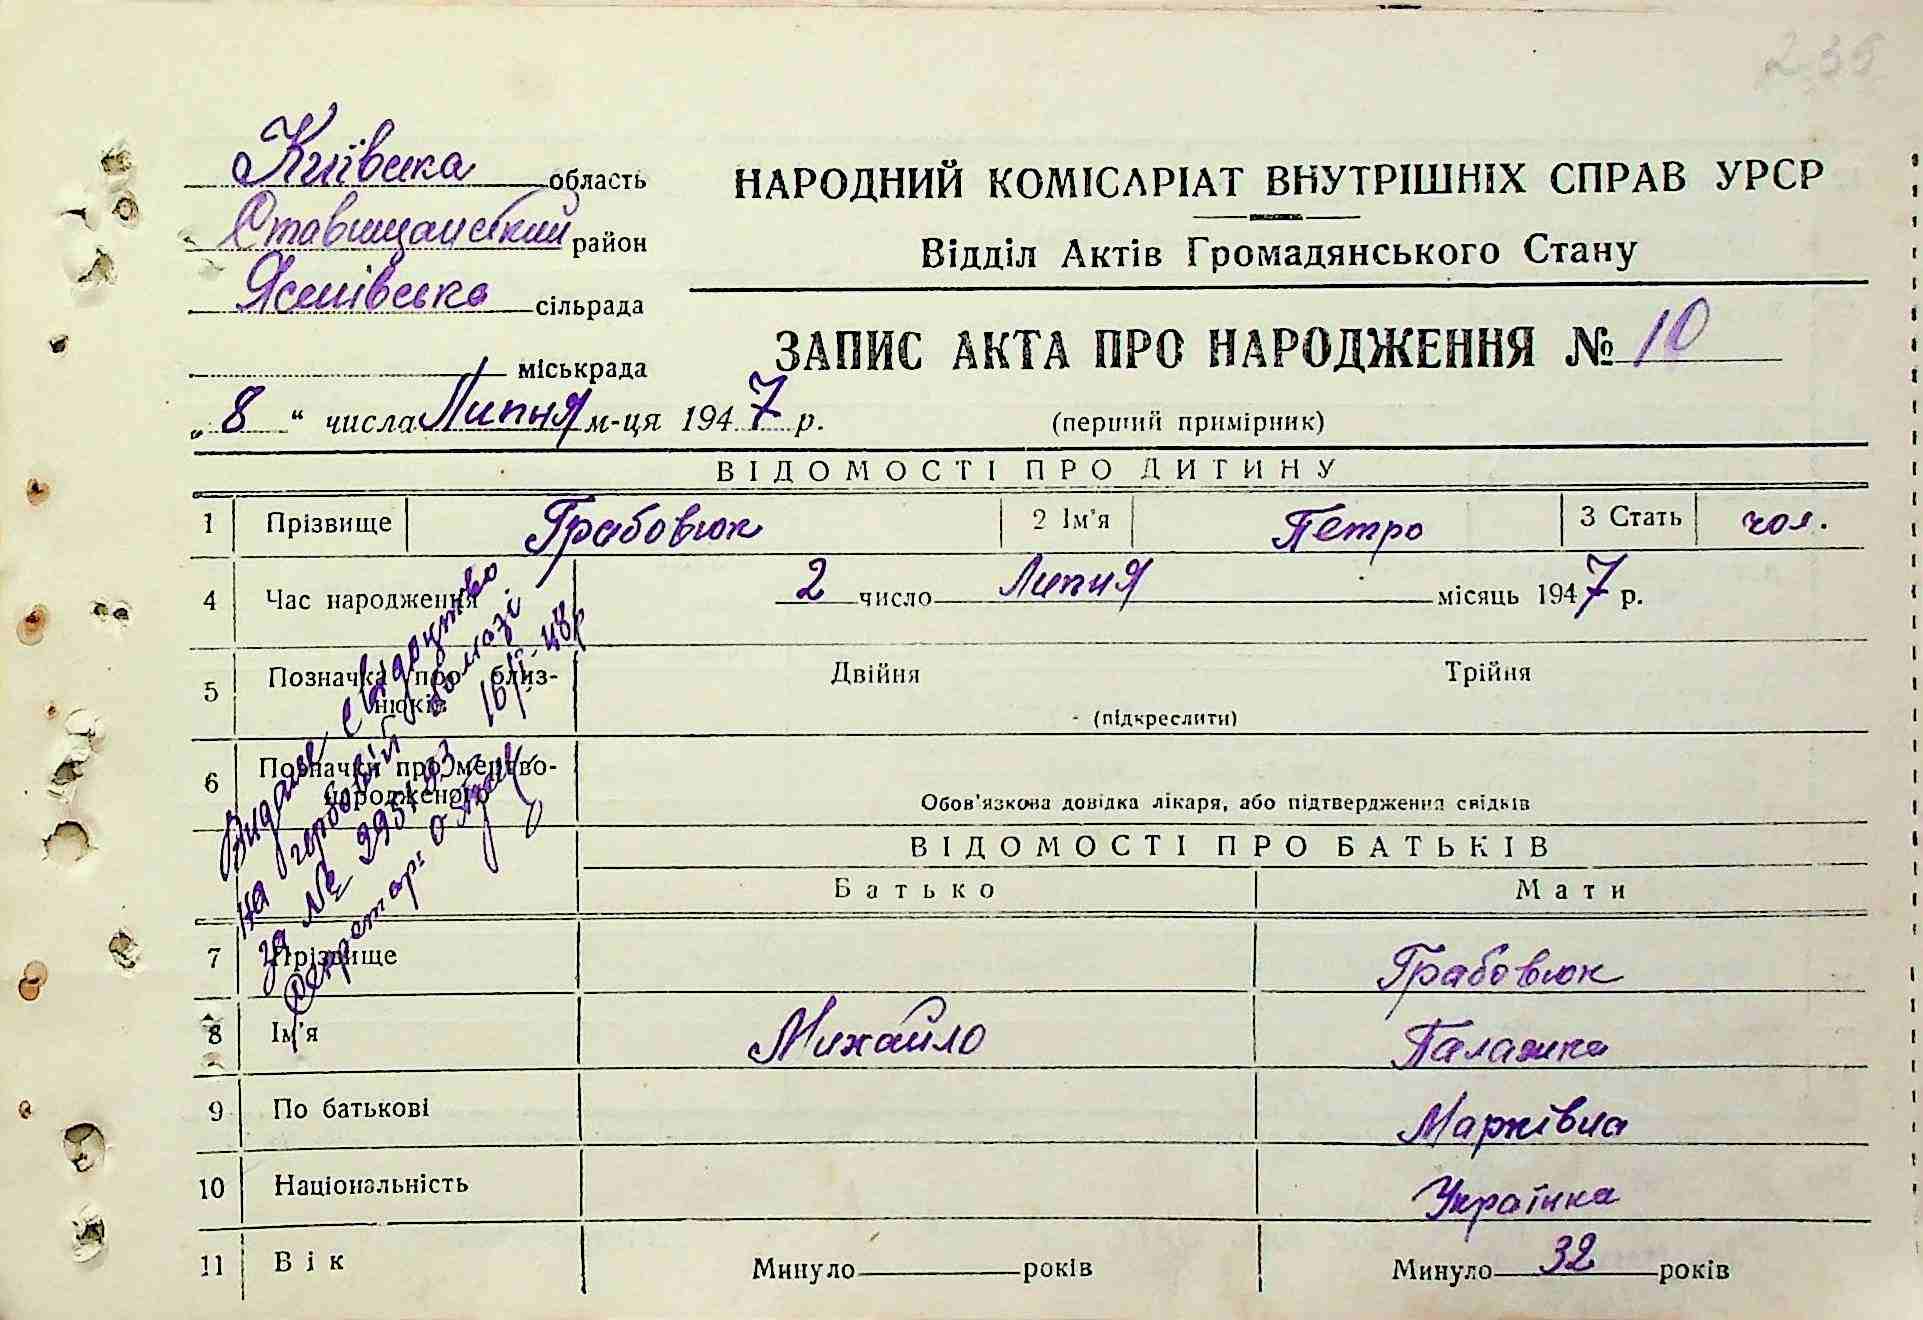 235
Київська область
Ставищанський район
Ясенівська сільрада
міськрада
„ 8 “ числа Липня м-ця 1947 р.
НАРОДНИЙ КОМІСАРІАТ ВНУТРІШНІХ СПРАВ УРСР
Відділ Актів Громадянського Стану
ЗАПИС АКТА ПРО НАРОДЖЕННЯ № 10
(перший примірник)
ВІДОМОСТІ ПРО ДИТИНУ
1 Прізвище Грабовюк 2 Ім'я Петро 3 Стать чол.
4 Час народження 2 число Липня місяць 1947 р.
5 Позначка про близ-
нюків Двійня Трійня
(підкреслити)
6 Позначки про мертво-
народженого
Обов'язкова довідка лікаря, або підтвердження свідків
Видане свідоцтво
на гербовій бомазі
за №
Секретар:
ВІДОМОСТІ ПРО БАТЬКІВ
Батько Мати
7 Прізвище Грабовюк
8 Ім'я Михайло Палажка
9 По батькові Марківна
10 Національність Українка
11 Вік Минуло років Минуло 32 років